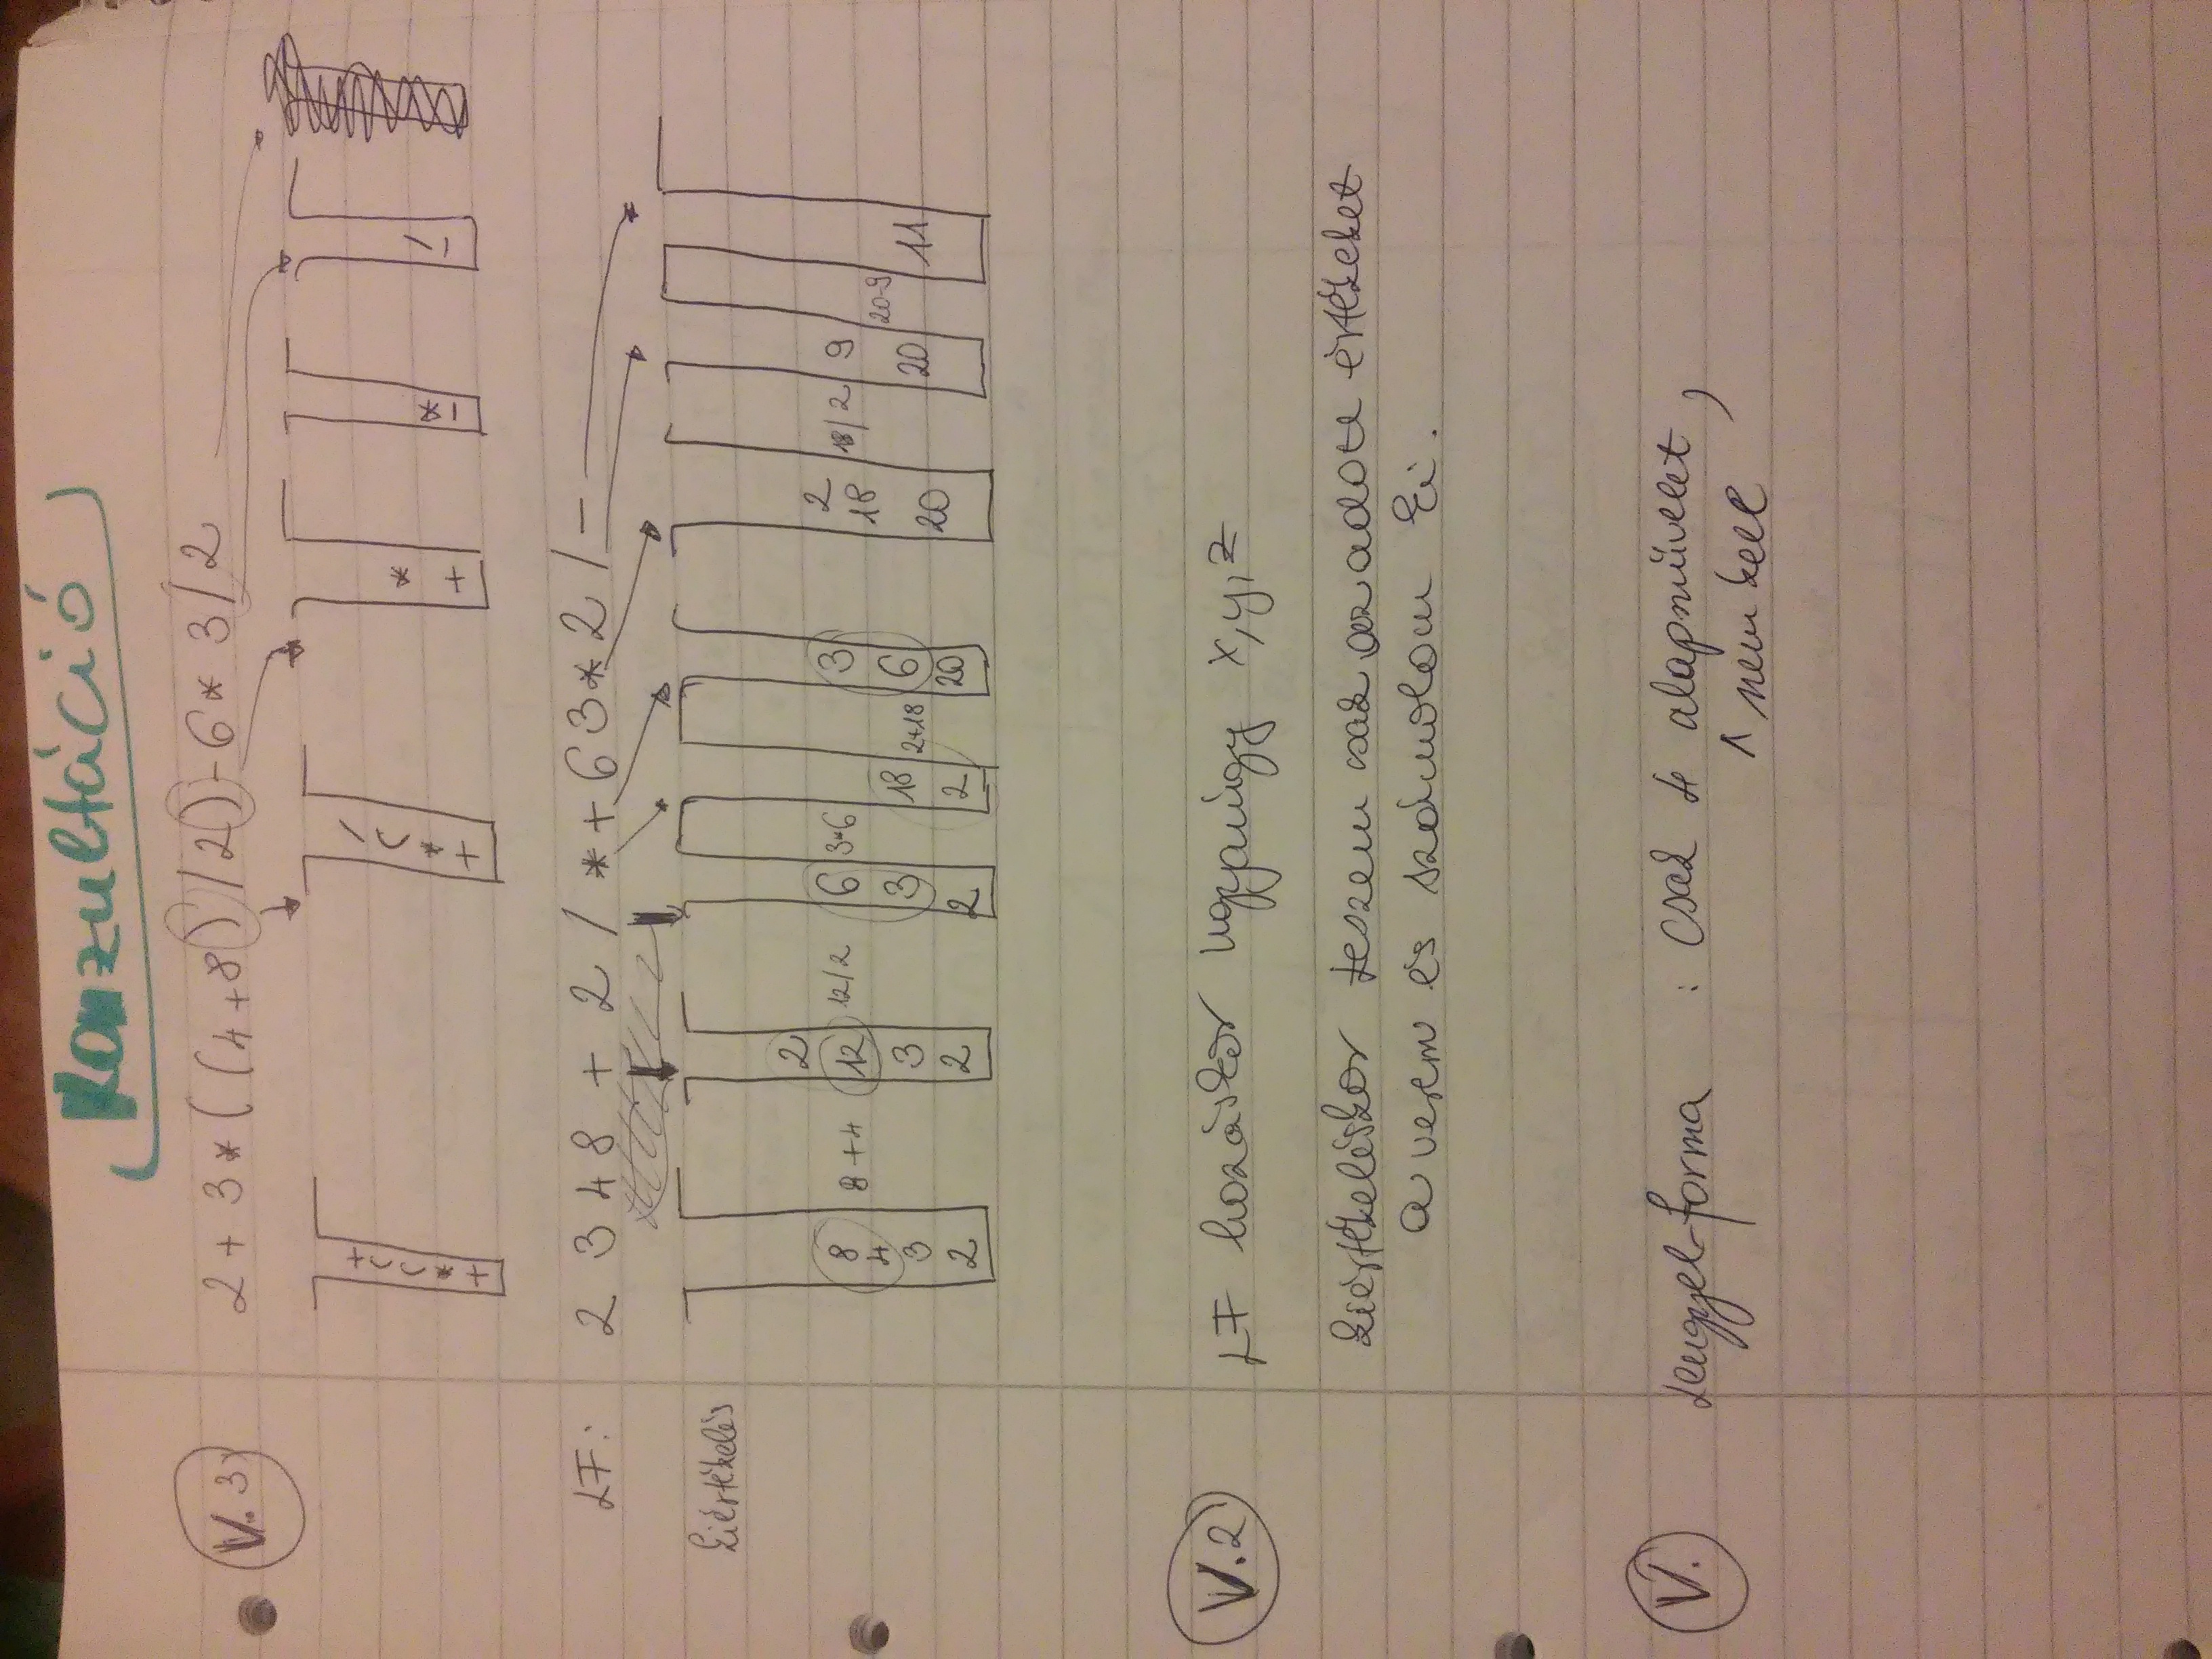 Konzultáció
V.3) 2 + 3 * ( ( 4 + 8 ) / 2 ) - 6 * 3 / 2
+ ( ( * +
/ ( * +
* +
* -
/ -
LF: 2 3 4 8 + 2 / * + 6 3 * 2 / -
Kiértékelés
8 4 3 2
8 + 4
2 12 3 2
12/2
6 3 2
3*6
18 2
2+18
3 6 20
2 18 20
18/2
9 20
20-9
11
V.2) LF hozáskor ugyanúgy x, y, z
kiértékeléskor teszem csak az adott értékeket
a verem és számolom ki.
V. Lengyel-forma : csak 4 alapművelet,
^ nem kell